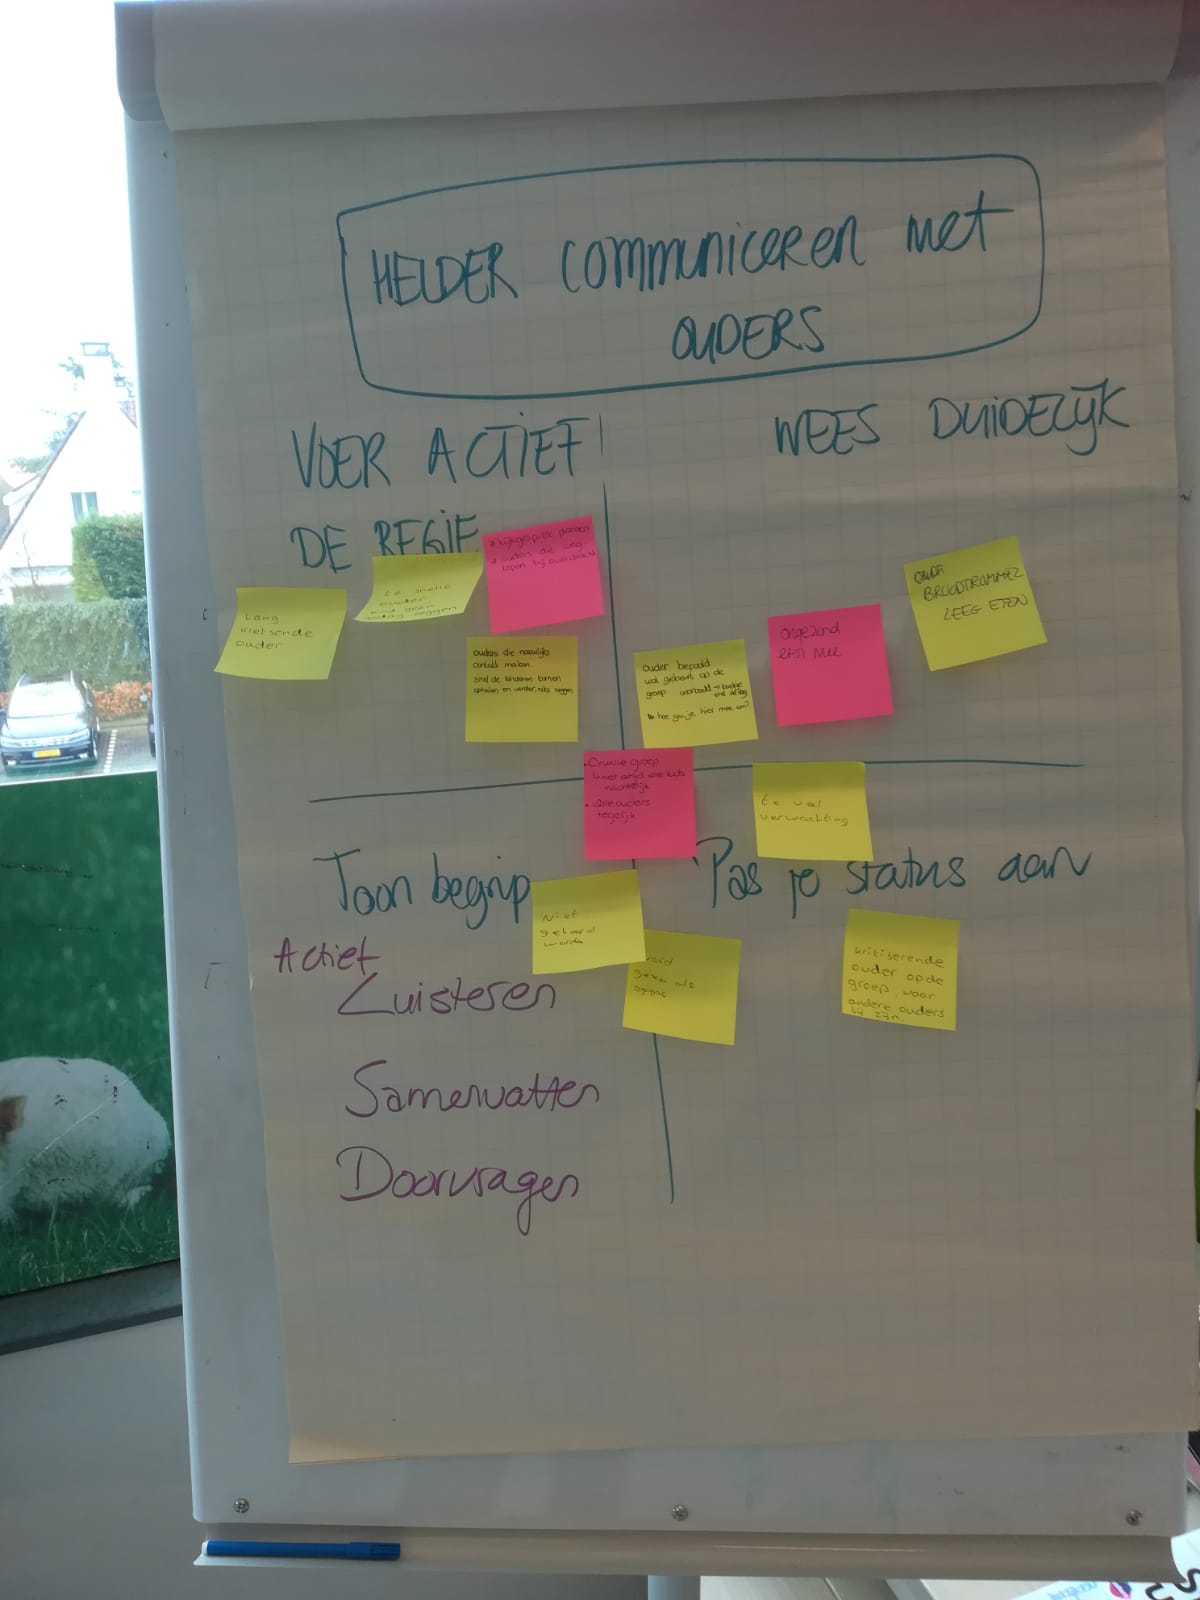 HELDER communiceren met
OUDERS
VOER ACTIEF
DE REGIE
WEES DUIDELIJK
Lang
kletsende
ouder
te snelle
ouder
kind geen
dag zeggen
* kijkgesprek plannen
* ouders die weg
lopen bij overdracht
ouders die nauwelijks
contact maken.
snel de kinderen komen
ophalen en verder niks zeggen
ouder bepaald
wat gebeurt op de
groep
hoe ga je hier mee om?
ongezond
eten mee
BROODTROMMEL
LEEG ETEN
• Drukke groep
alle kids
• alle ouders
tegelijk
te veel
verwachting
Toon begrip
Pas je status aan
Niet
gehoord
worden
als
oppas
kritiserende
ouder op de
groep, waar
andere ouders
bij zijn.
Actief
Luisteren
Samenvatten
Doorvragen